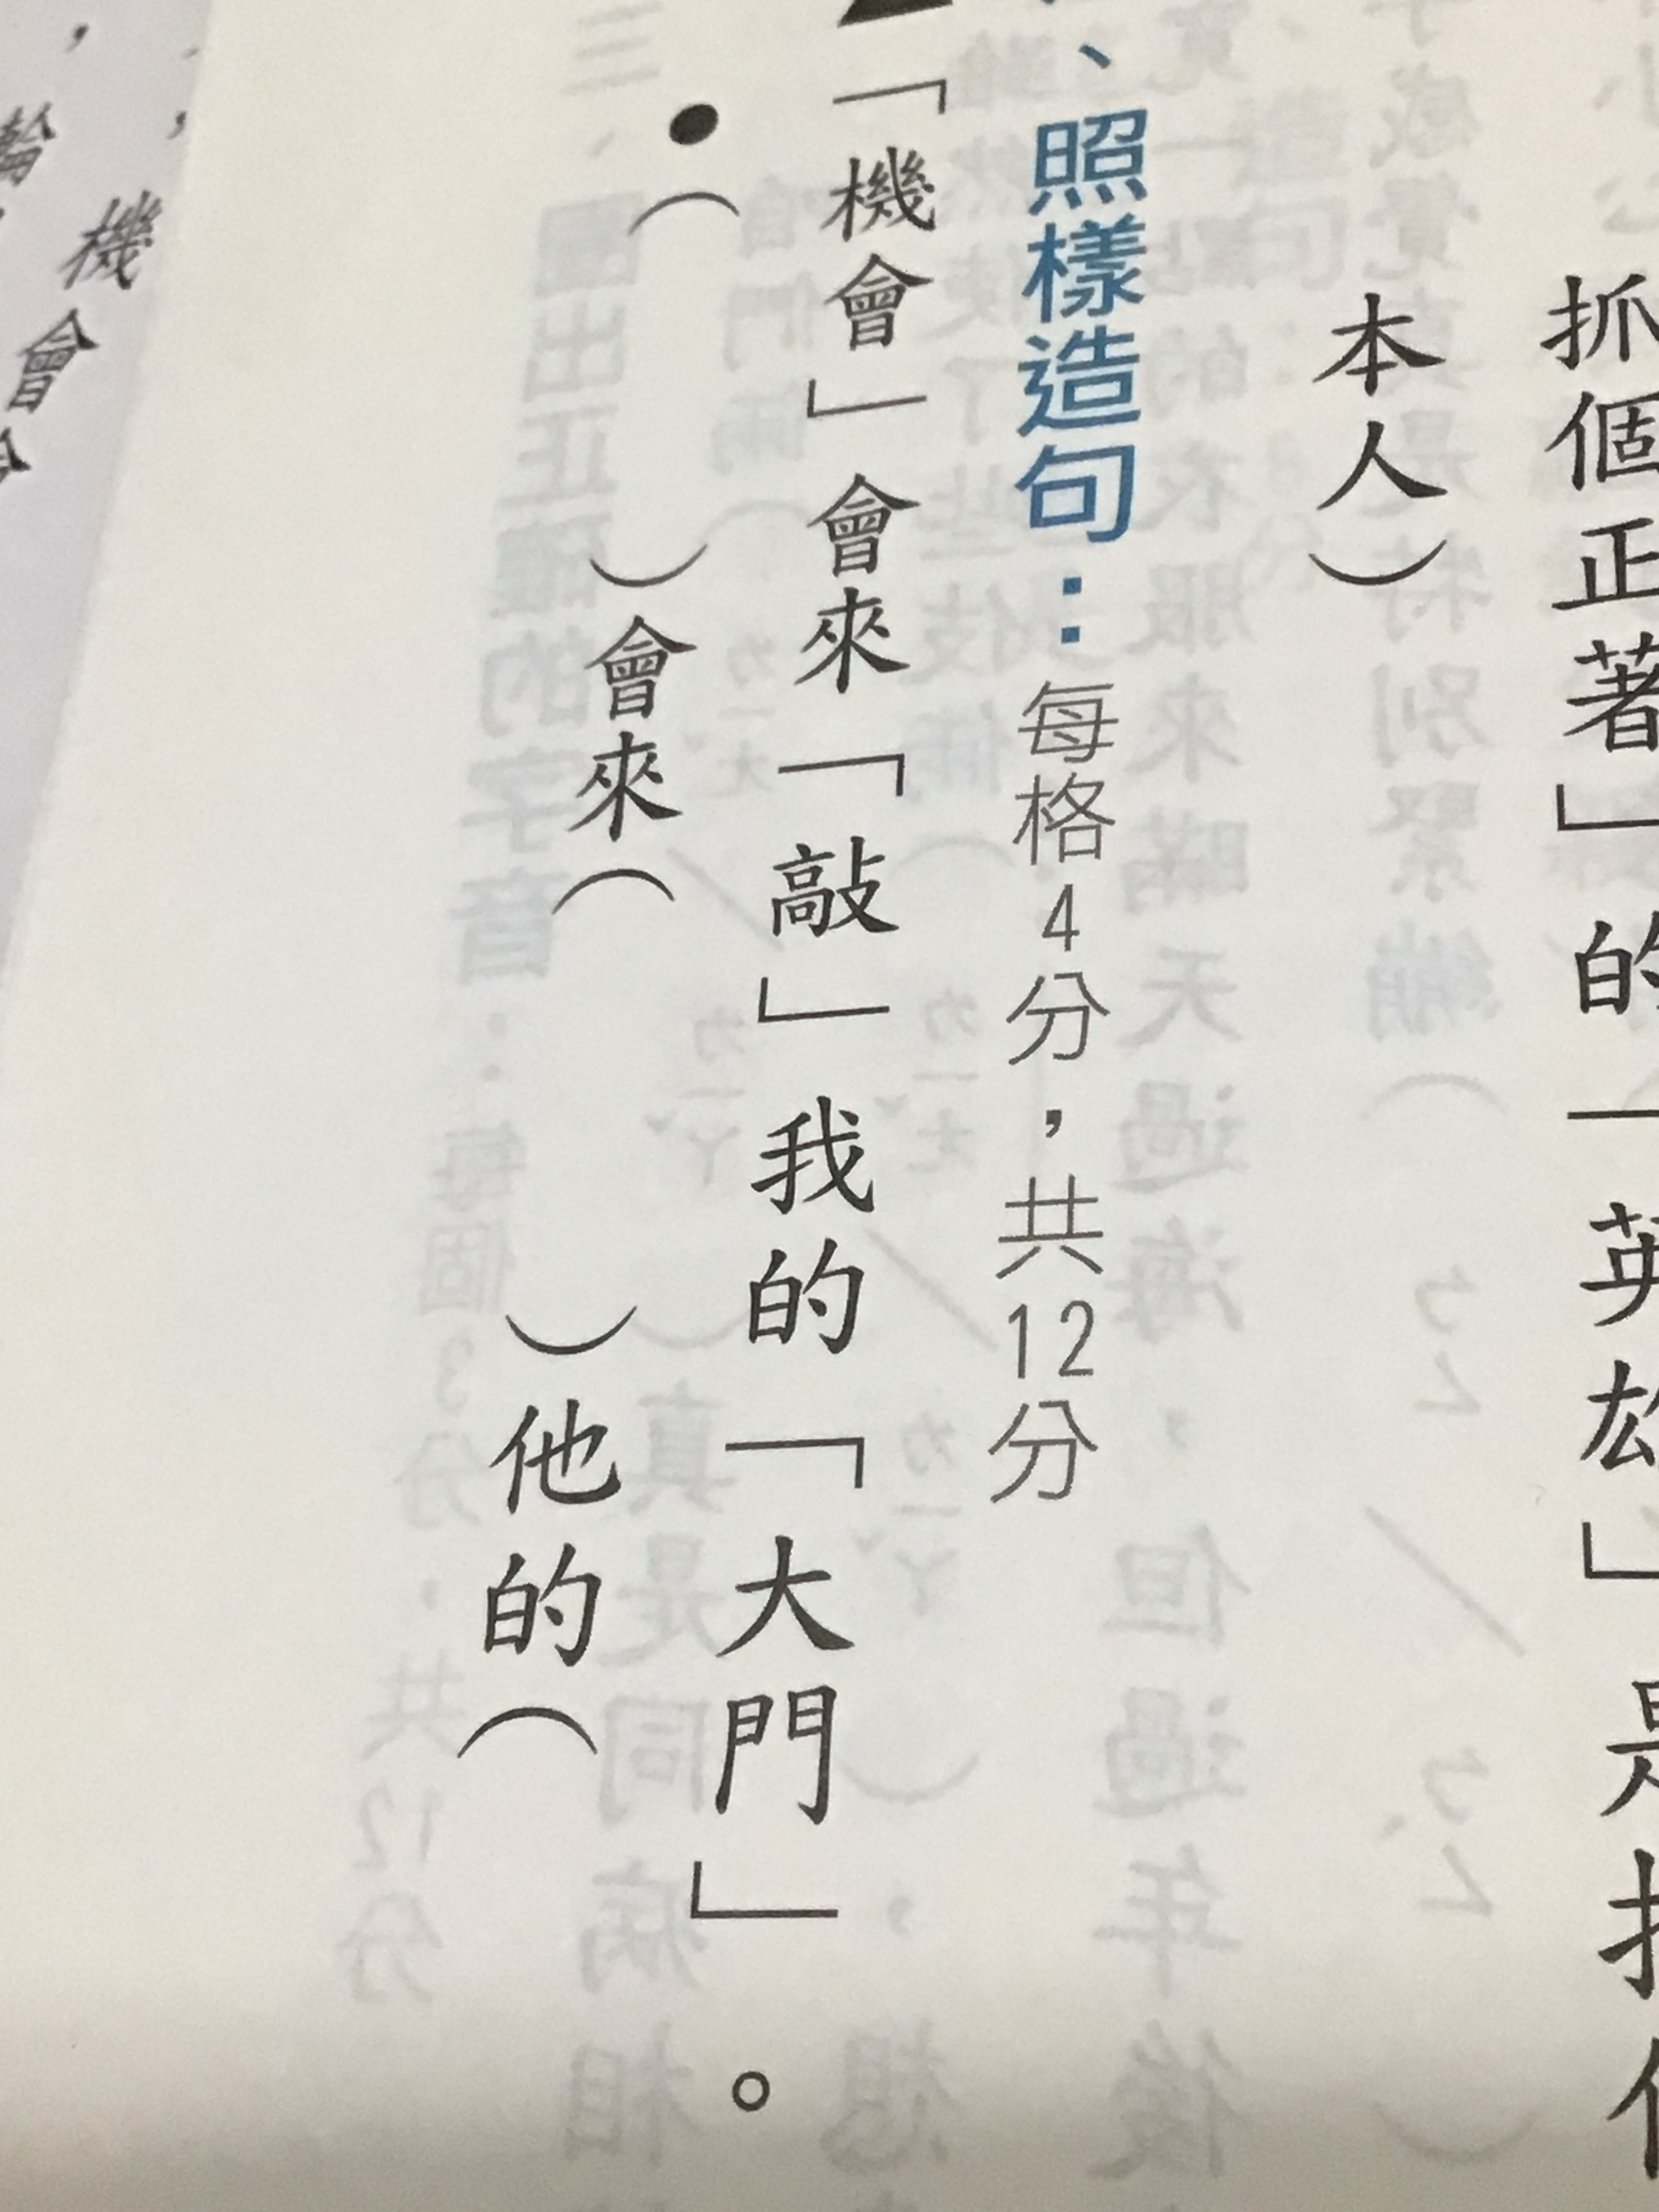 抓個正著」的「英雄」是指
本人）
、照樣造句：每格4分，共12分
「機會」會來「敲」我的「大門」。
●（　　）會來（　　）他的（
機會